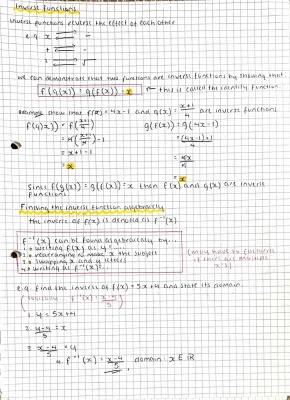 Inverse Functions
Inverse functions reverse the effect of each other
e.g. x ÷
+ -
² √
we can demonstrate that two functions are inverse functions by showing that
f(g(x)) = g(f(x)) = x this is called the identity function
example show that f(x) = 4x-1 and g(x) = x+1/4 are inverse functions
f(g(x)) = f(x+1/4) g(f(x)) = g(4x-1)
= 4(x+1/4) - 1 = (4x-1)+1/4
= x+1-1 = 4x/4
= x = x
Since f(g(x)) = g(f(x)) = x then f(x) and g(x) are inverse
functions.
Finding the inverse function algebraically
the inverse of f(x) is denoted as f⁻¹(x)
f⁻¹(x) can be found algebraically by...
1. writing f(x) as y = ......
2. rearranging to make x the subject
3. swapping x and y letters
4. writing as f⁻¹(x) = ...
(may have to factorise
if there are multiple
x's)
e.g. find the inverse of f(x) = 5x+4 and state its domain.
f⁻¹(x) = x-4/5
1. y = 5x+4
2. y-4/5 = x
3. x-4/5 = y
4. f⁻¹(x) = x-4/5 domain: x ∈ ℝ